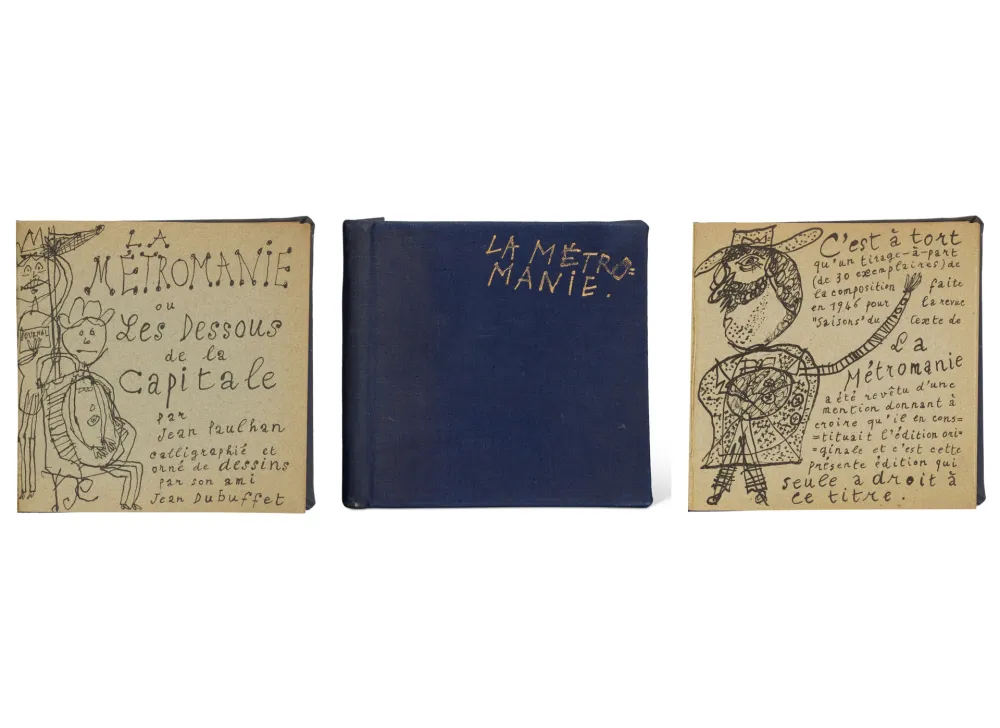 JOURNAL
LA
MÉTROMANIE
ou
Les Dessous
de la
Capitale
par
Jean Paulhan
calligraphié et
orné de dessins
par son ami
Jean Dubuffet
LA MÉTRO=
MANIE.
C'est à tort
qu'un tirage-à-part
(de 30 exemplaires) de
la composition faite
en 1946 pour la revue
"Saisons" du texte de
La
Métromanie
a été revêtu d'une
mention donnant à
croire qu'il en cons=
=tituait l'édition ori=
=ginale et c'est cette
présente édition qui
seule a droit à
ce titre.